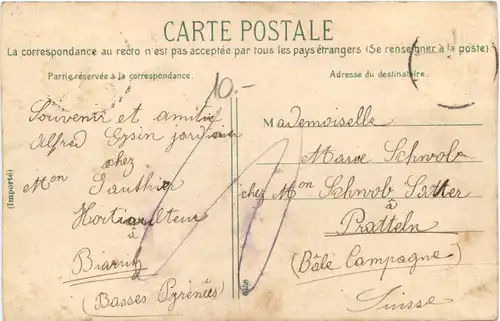 CARTE POSTALE
La correspondance au recto n'est pas acceptée par tous les pays étrangers (Se renseigner à la poste)
Partie réservée à la correspondance.
Adresse du destinataire.
10.-
Souvenir et amitié
Alfred Gysin jardinier
chez
Mon Gauthier
Horticulteur
à
Biarritz
(Basses Pyrénées)
(Importé)
Mademoiselle
Marie Schwob
chez Mon Schwob
à
Pratteln
(Bâle Campagne)
Suisse